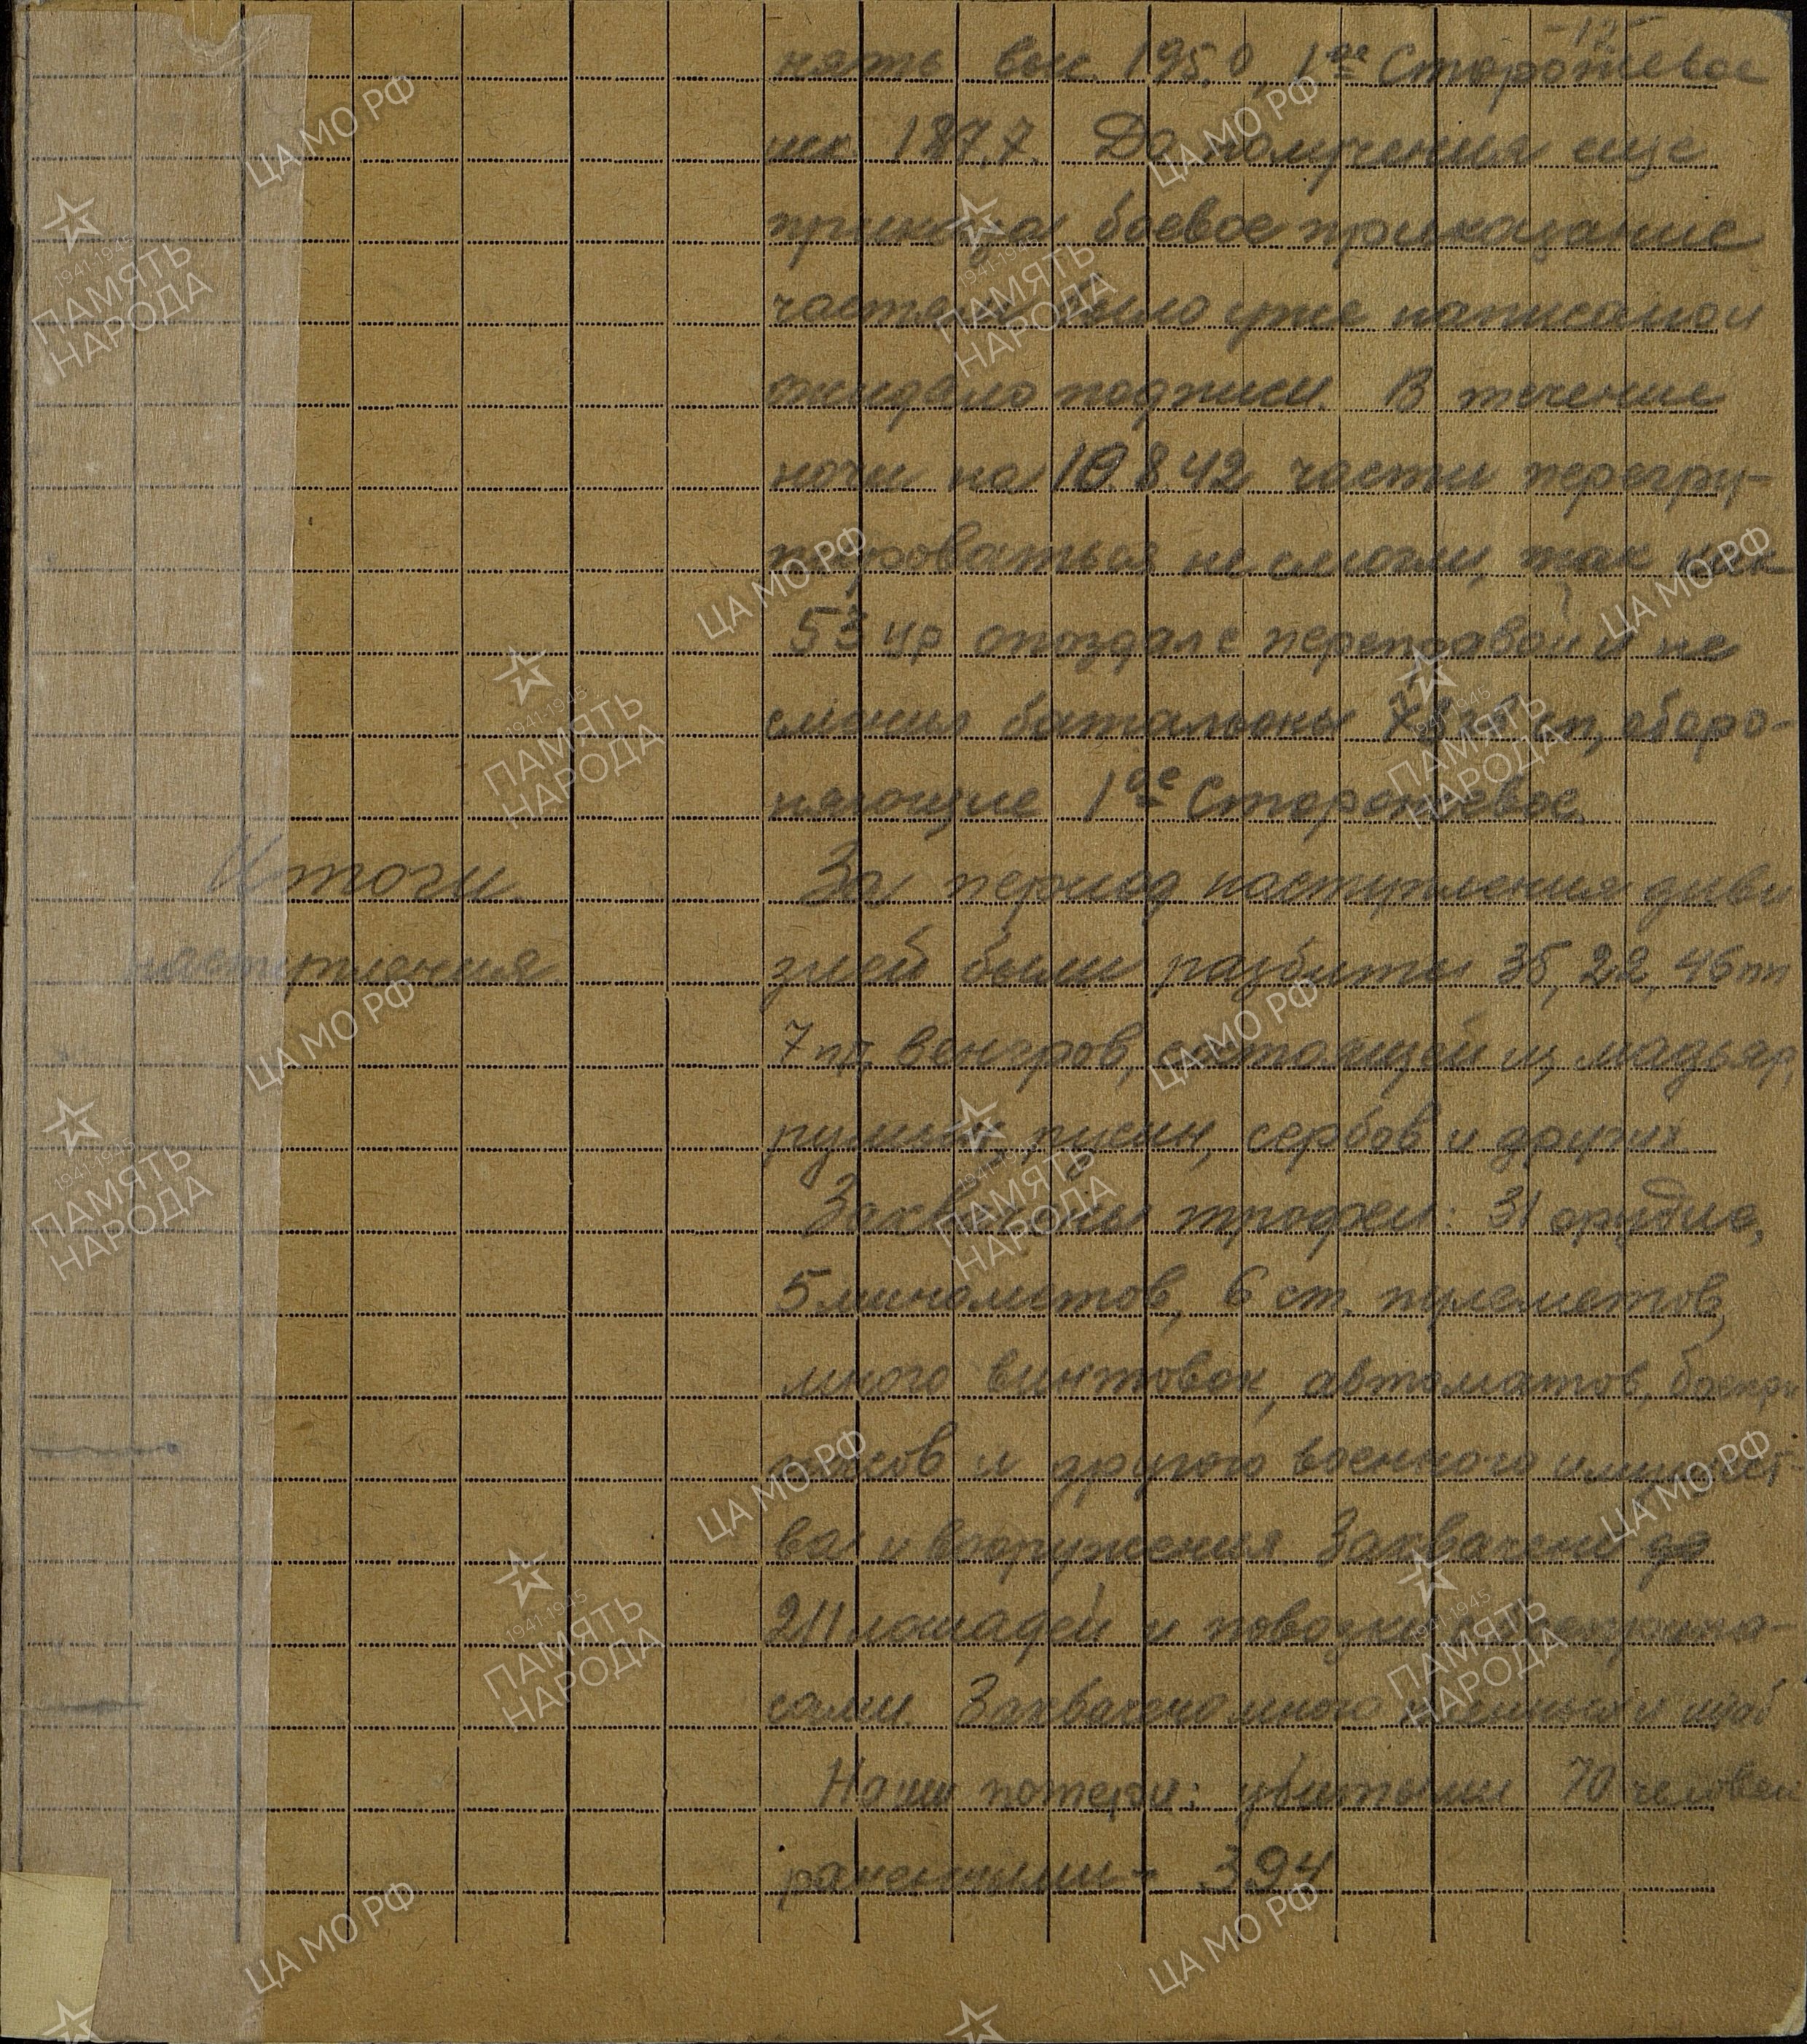 -12-
нять выс. 195,0, 1ое Сторожевое
иск. 187,7. До получения еще
приказа боевое приказание
частям было уже написано и
ожидало подписи. В течение
ночи на 10.8.42 части перегру-
пироваться не смогли, так как
53 ур опоздал с переправой и не
сменил батальоны 78 сп, оборо-
няющие 1ое Сторожевое.
Итоги наступления
За период наступления диви
зией были разбиты 35, 22, 46 пп
7 пд венгров, состоящей из мадьяр,
румын, русин, сербов и других.
Захвачены трофеи: 31 орудие,
5 минометов, 6 ст. пулеметов,
много винтовок, автоматов, боепри
пасов и другого военного имущест-
ва и вооружения. Захвачено до
211 лошадей и повозки с боеприпа-
сами. Захвачено много пленных и
Наши потери: убитыми 70 человек
ранеными - 394
ЦА МО РФ
1941-1945
ПАМЯТЬ
НАРОДА